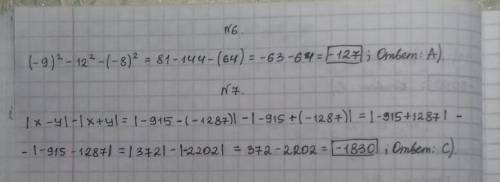 №6.
(-9)² - 12² - (-8)² = 81 - 144 - (64) = -63 - 64 = -127 ; Ответ: А)
№7.
|x-y| - |x+y| = |-915 - (-1287)| - |-915 + (-1287)| = |-915 + 1287| -
- |-915 - 1287| = |372| - |-2202| = 372 - 2202 = -1830 ; Ответ: С).